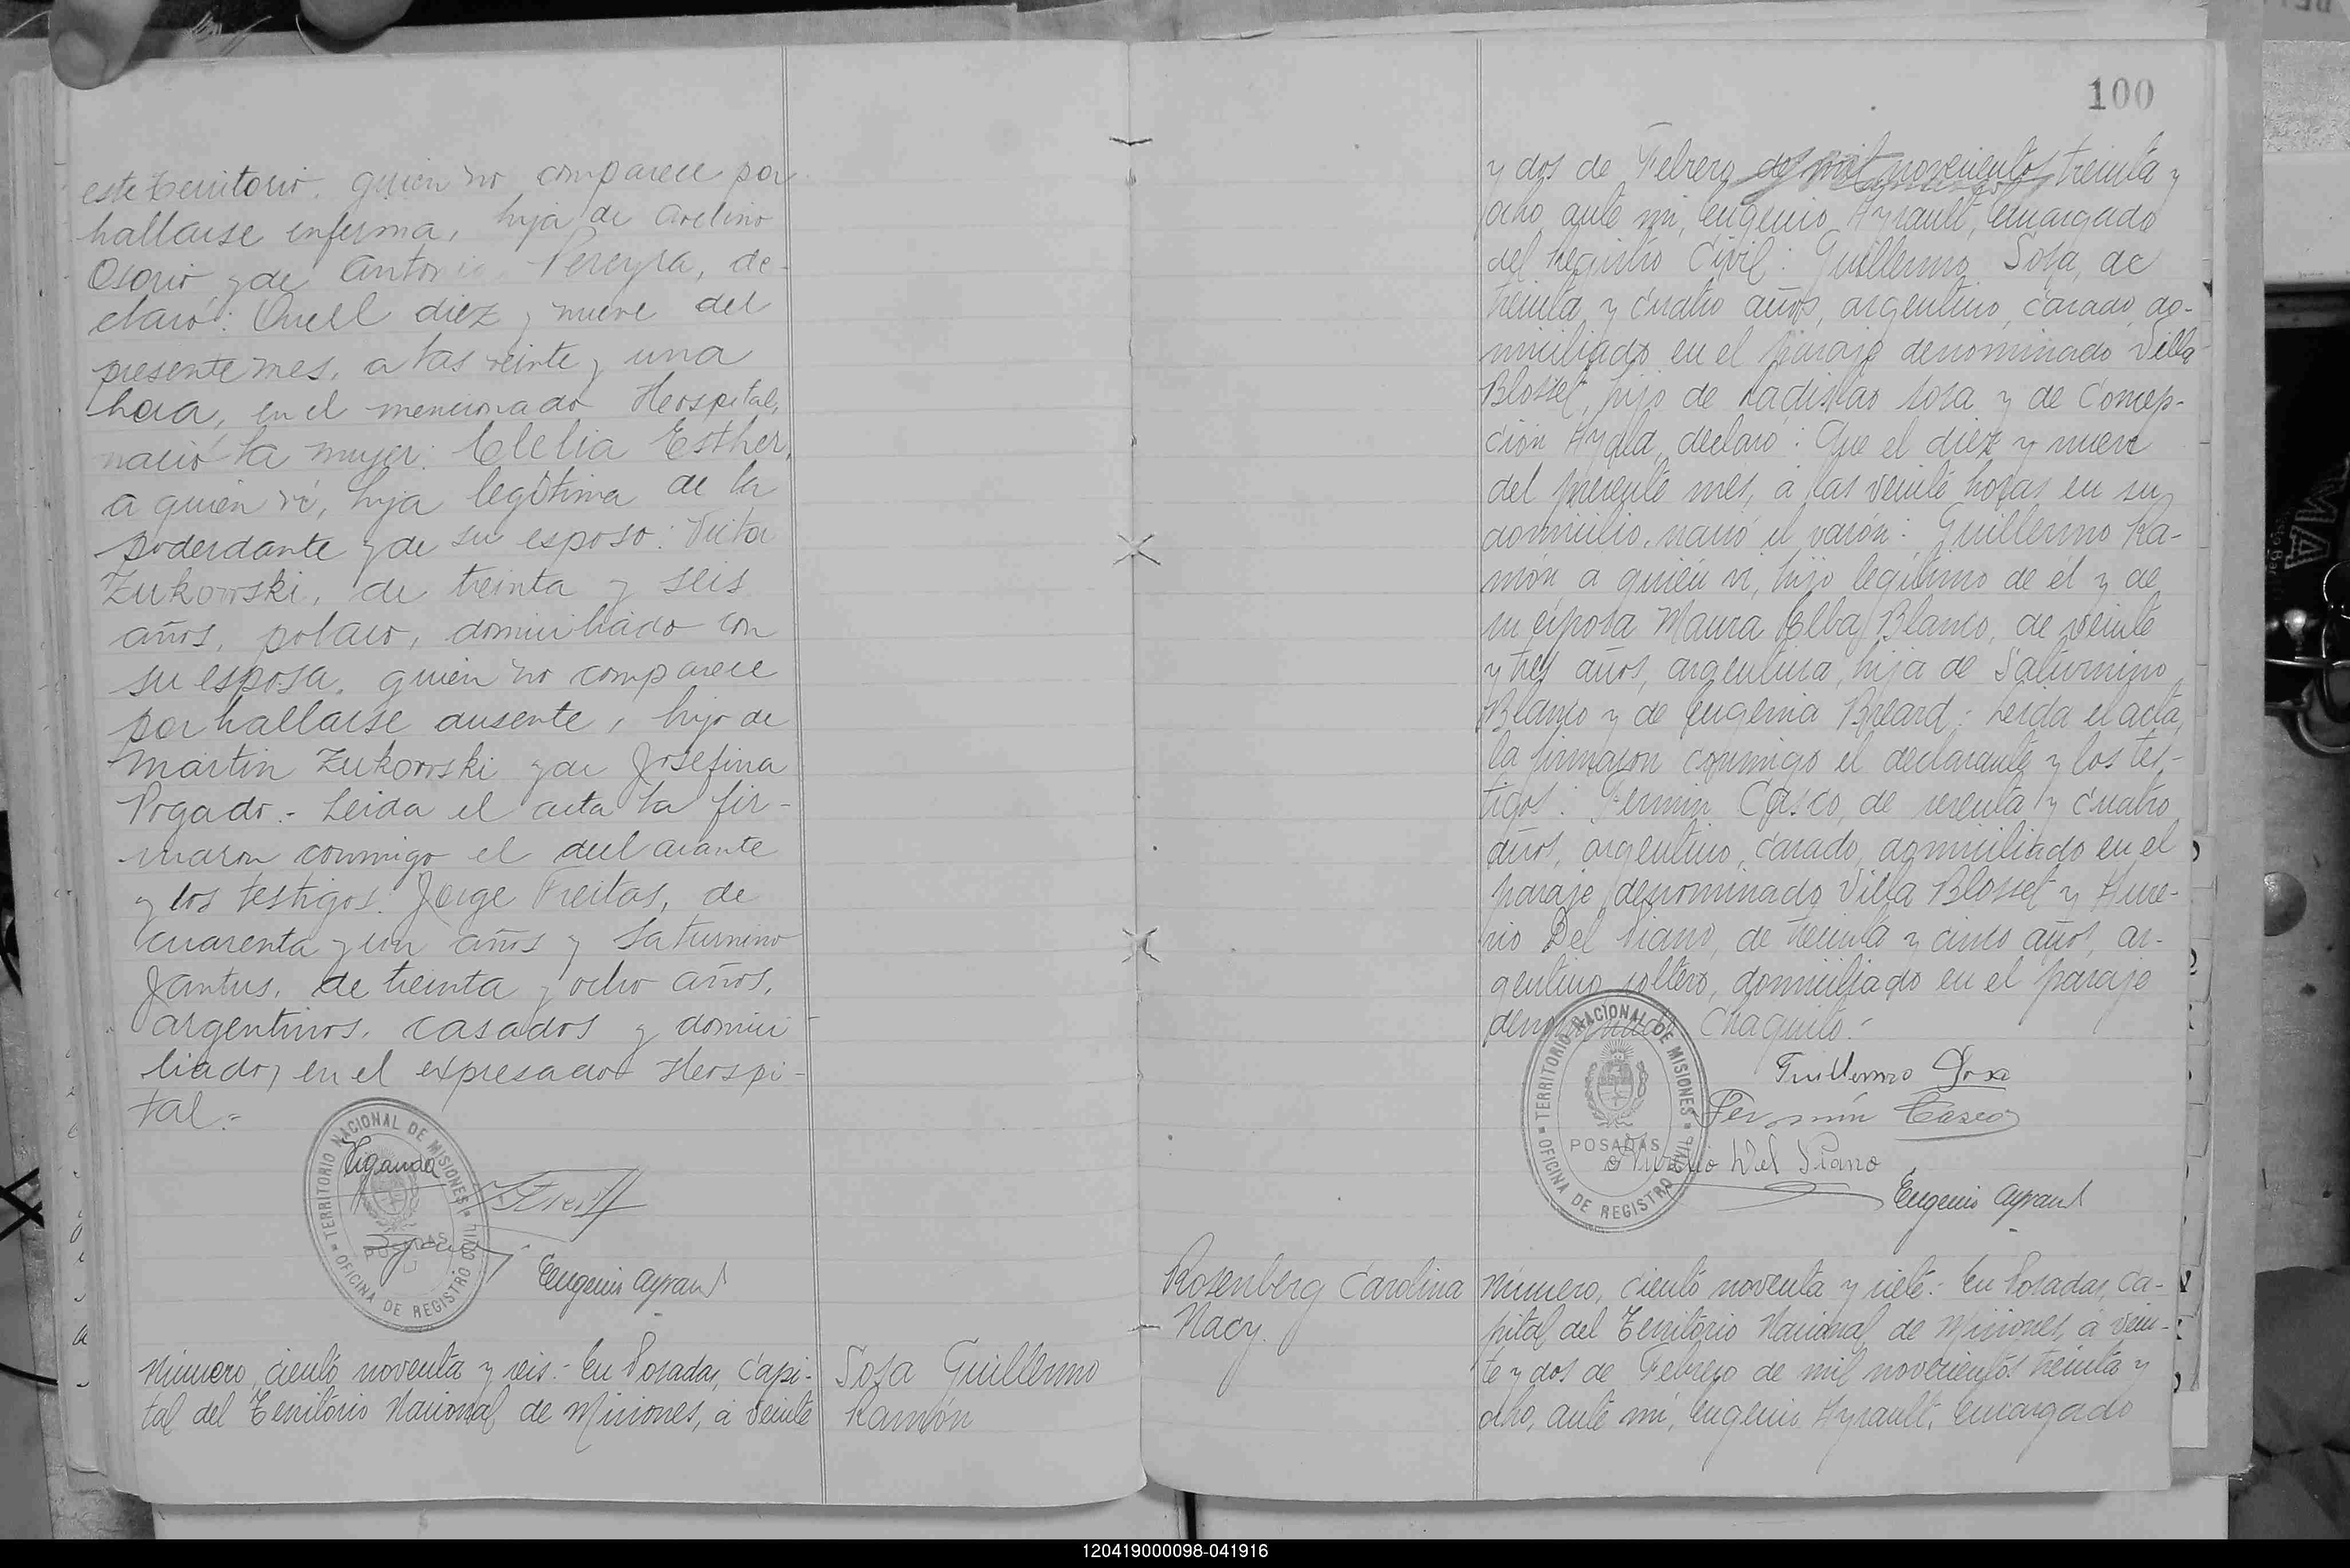 este territorio, quien no comparece por
hallarse enferma, hija de Avelino
Osorio y de Antonia Pereyra, de-
claró: Que el diez y nueve del
presente mes, a las veinte y una
hora, en el mencionado Hospital,
nació la mujer: Clelia Esther,
a quien ví, hija legítima de la
poderdante y de su esposo: Victor
Zukowski, de treinta y seis
años, polaco, domiciliado con
su esposa, quien no comparece
por hallarse ausente, hijo de
Martin Zukowski y de Josefina
Pogado.- Leida el acta la fir-
maron conmigo el declarante
y los testigos. Jorge Freitas, de
cuarenta y un años y Saturnino
Jantus, de treinta y ocho años,
argentinos, casados y domici-
liados en el expresado Hospi-
tal.=
TERRITORIO NACIONAL DE MISIONES
POSADAS
OFICINA DE REGISTRO CIVIL
Eugenio Ayrault
Número, ciento noventa y seis.- En Posadas, Capi-
tal del Territorio Nacional de Misiones, á veinte
Sosa Guillermo
Ramón
100
y dos de Febrero de mil novecientos treinta y
ocho, ante mi, Eugenio Ayrault, Encargado
del Registro Civil: Guillermo Sosa, de
treinta y cuatro años, argentino, casado, do-
miciliado en el paraje denominado Villa
Blosset, hijo de Ladislao Sosa y de Concep-
ción Ayala, declaró: Que el diez y nueve
del presente mes, á las veinte horas en su
domicilio, nació el varón: Guillermo Ra-
món, a quien ví, hijo legitimo de él y de
su esposa Maura Elba Blanco, de veinte
y tres años, argentina, hija de Saturnino
Blanco y de Eugenia Breard.- Leida el acta,
la firmaron conmigo el declarante y los tes-
tigos: Fermin Casco, de sesenta y cuatro
años, argentino, casado, domiciliado en el
paraje denominado Villa Blosset y Aure-
lio Del Piano, de treinta y cinco años, ar-
gentino, soltero, domiciliado en el paraje
denominado Chaquito.-
Guillermo Sosa
Fermín Casco
Aurelio Del Piano
Eugenio Ayrault
TERRITORIO NACIONAL DE MISIONES
POSADAS
OFICINA DE REGISTRO CIVIL
Rosenberg Carolina
Nacy.
Número, ciento noventa y siete.- En Posadas, Ca-
pital del Territorio Nacional de Misiones, á vein-
te y dos de Febrero de mil novecientos treinta y
ocho, ante mi, Eugenio Ayrault, Encargado
120419000098-041916